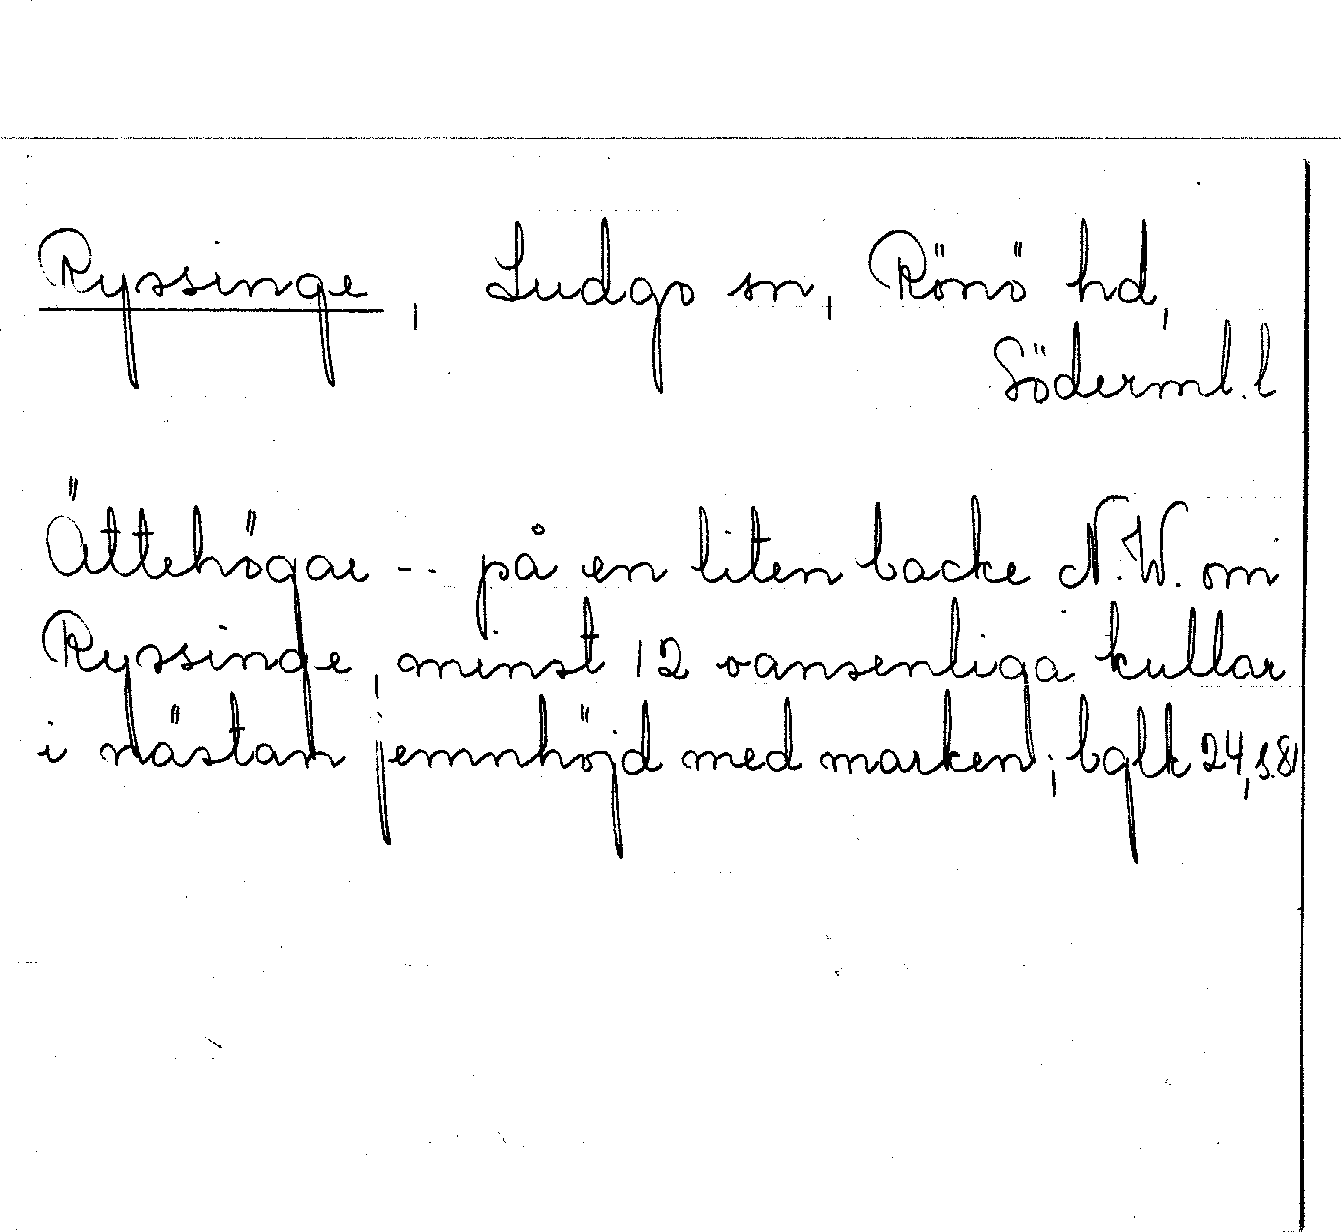 Ryssinge, Ludgo sn, Rönö hd,
Söderml. l
Ättehögar -- på en liten backe N.W. om
Ryssinge, minst 12 oansenliga kullar
i nästan jemnhöjd med marken; bglk 24, s.8